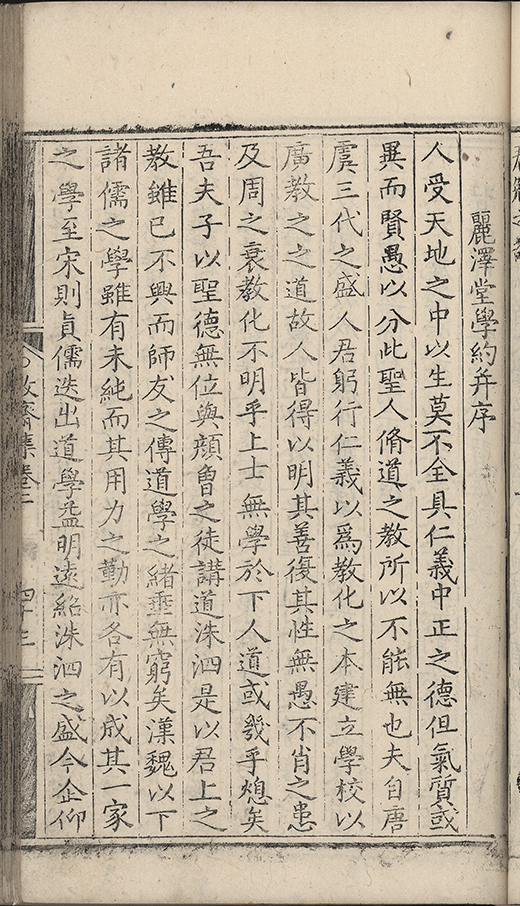 麗澤堂學約并序
人受天地之中以生莫不全具仁義中正之德但氣質或
異而賢愚以分此聖人脩道之教所以不能無也夫自唐
虞三代之盛人君躬行仁義以爲教化之本建立學校以
廣教之之道故人皆得以明其善復其性無愚不肖之患
及周之衰教化不明乎上士無學於下人道或幾乎熄矣
吾夫子以聖德無位與顔曾之徒講道洙泗是以君上之
教雖已不興而師友之傳道學之緒垂無窮矣漢魏以下
諸儒之學雖有未純而其用力之勤亦各有以成其一家
之學至宋則眞儒迭出道學益明遠紹洙泗之盛今企仰
集卷二